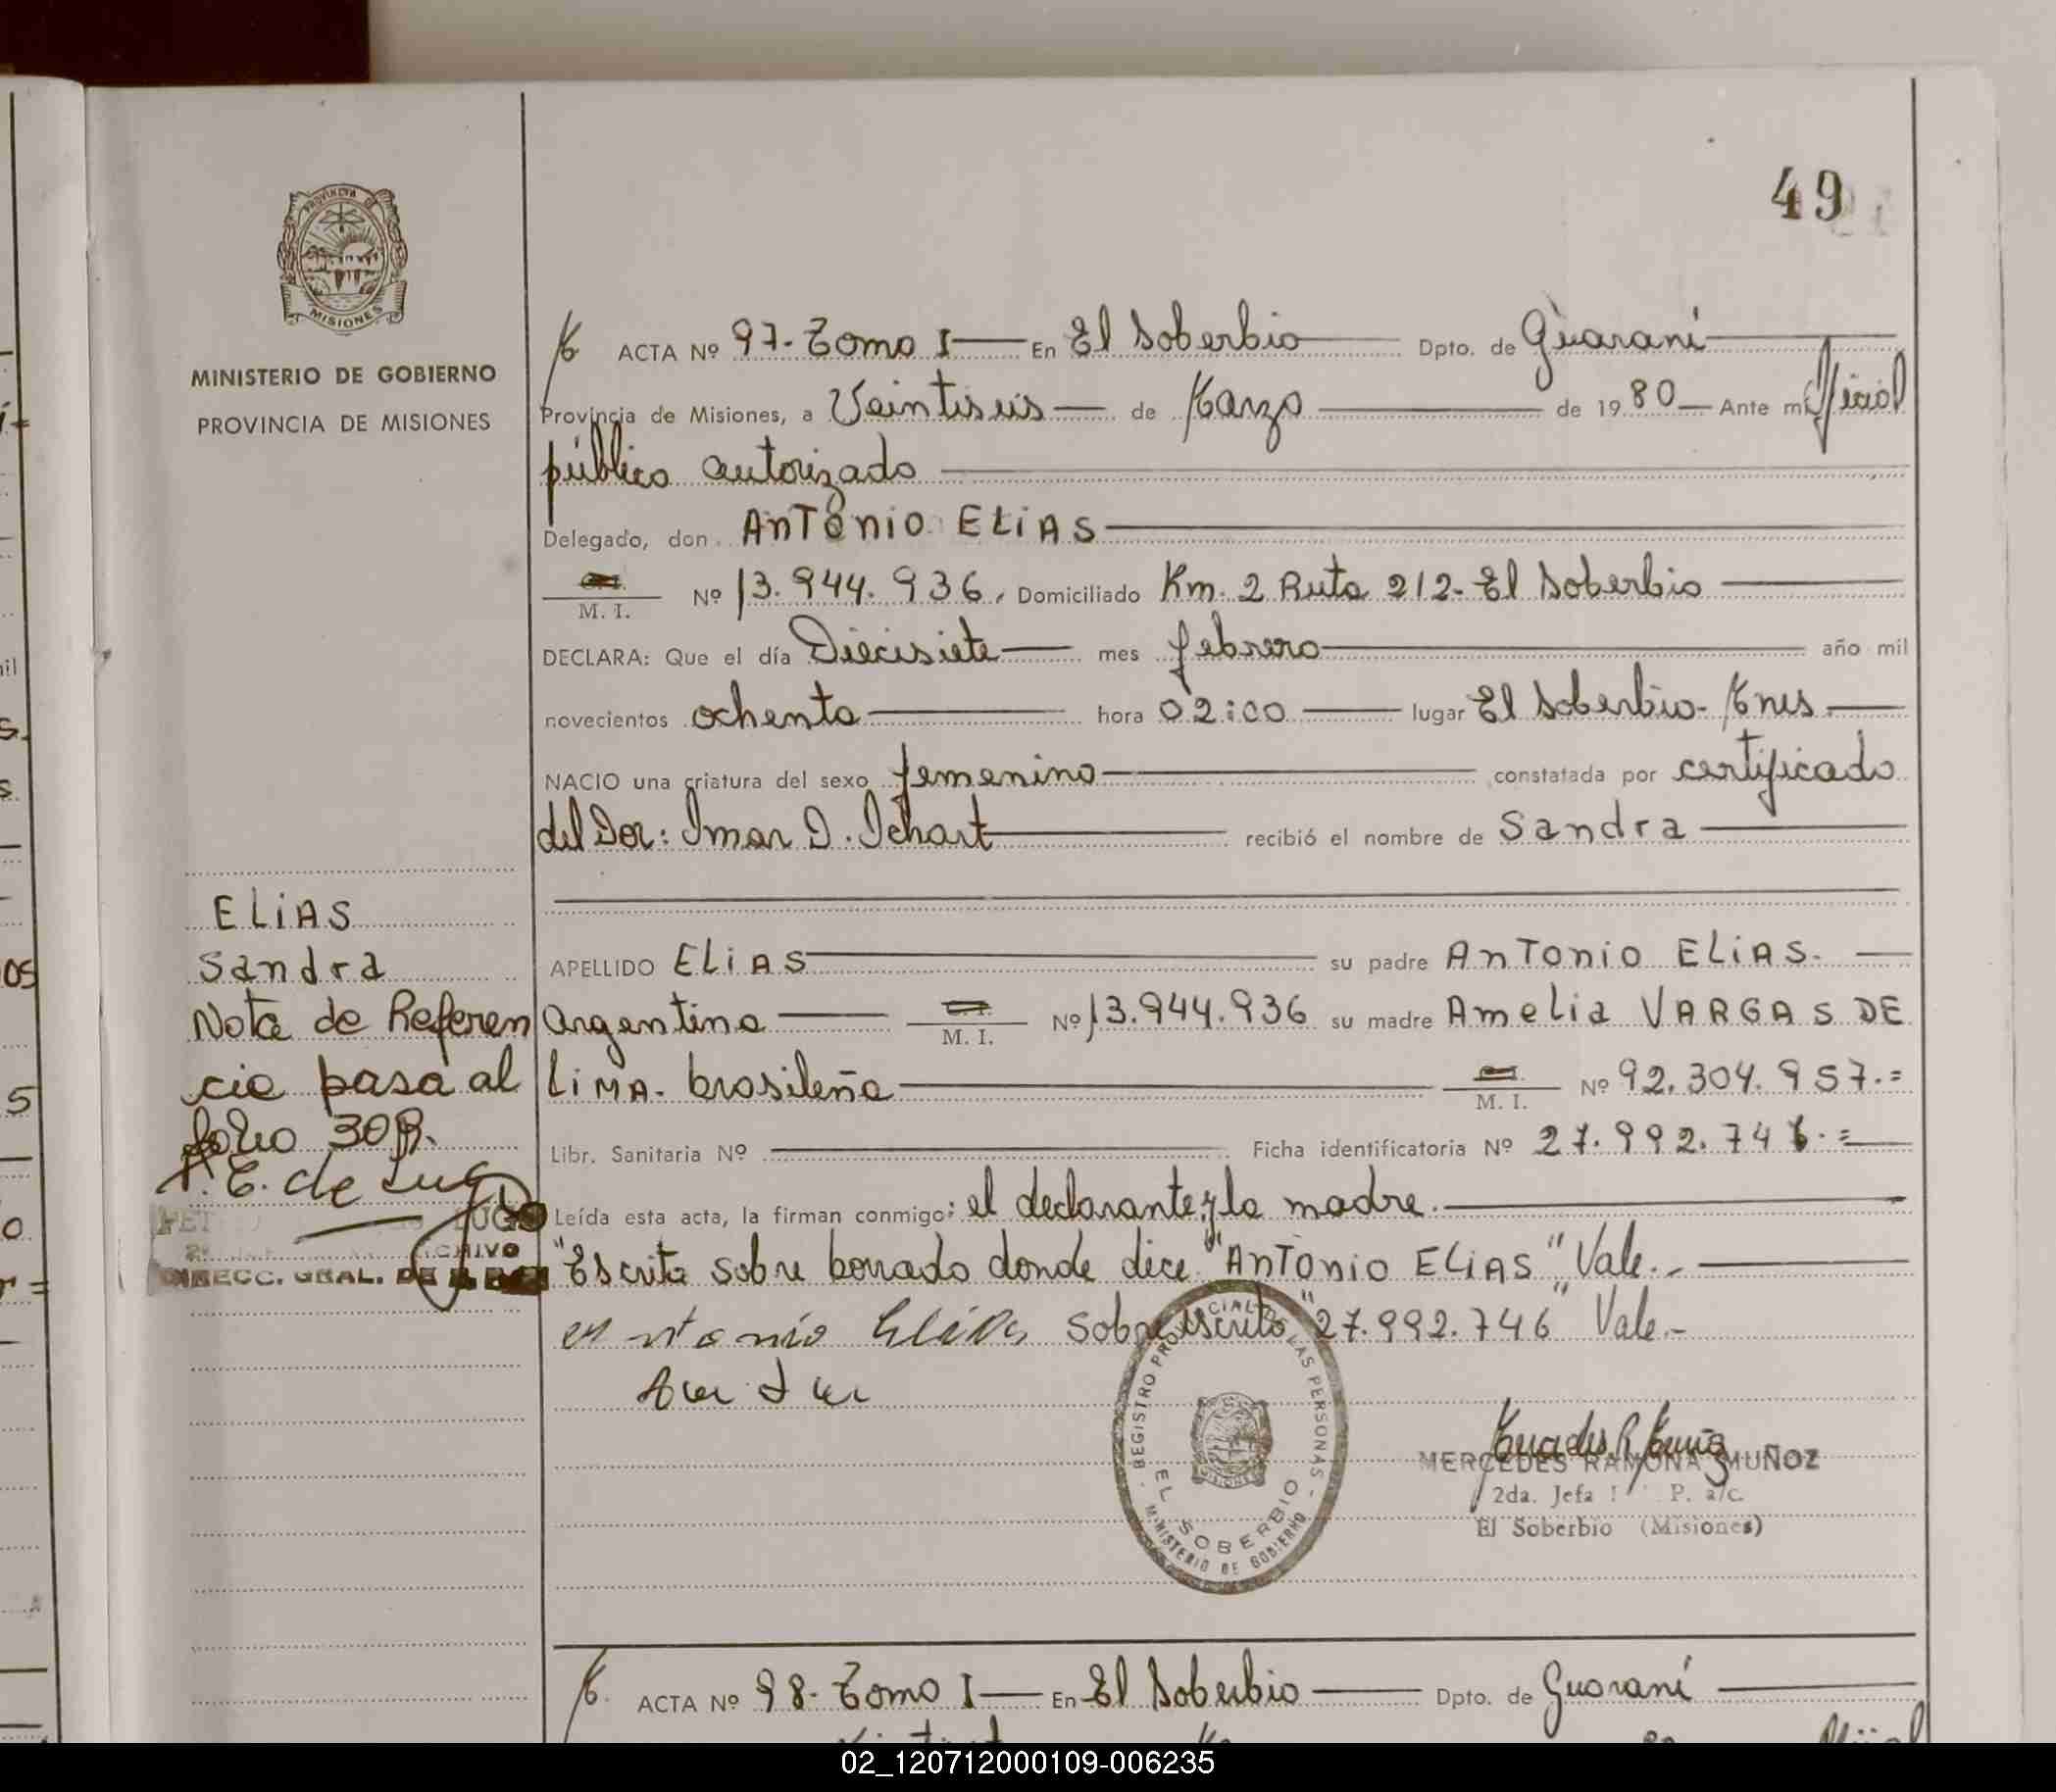 49
PROVINCIA DE
MISIONES
MINISTERIO DE GOBIERNO
PROVINCIA DE MISIONES
ACTA Nº 97-Tomo I En El Soberbio Dpto. de Guaraní
Provincia de Misiones, a Veintiseis de Marzo de 1980 Ante mi Oficial
público autorizado
Delegado, don AnTonio ELiAS
M. I. Nº 13.944.936, Domiciliado Km. 2 Ruta 212-El Soberbio
DECLARA: Que el día Diecisiete mes febrero año mil
novecientos ochenta hora 02:00 lugar El Soberbio-Mnes
NACIO una criatura del sexo femenino constatada por certificado
del Dor: Imar D. Ichart recibió el nombre de Sandra
ELiAS
Sandra
Nota de Referen
cia pasa al
folio 30
E. de Lugo
LUGO
ARCHIVO
DIRECC. GRAL. DE
APELLIDO ELiAS su padre AnTonio ELiAS.
Argentino M. I. Nº 13.944.936 su madre Amelia VARGAS DE
LiMA- brasileña M. I. Nº 92.304.957.=
Libr. Sanitaria Nº Ficha identificatoria Nº 27.992.746.=
Leída esta acta, la firman conmigo: el declarante y la madre.
"Escrito sobre borrado donde dice "AnTonio ELiAS" Vale.-
antonio Elias Sobreescrito "27.992.746" Vale.-
REGISTRO PROVINCIAL DE LAS PERSONAS
EL SOBERBIO
MINISTERIO DE GOBIERNO
MISIONES
MERCEDES RAMONA MUÑOZ
2da. Jefa P. a/c.
El Soberbio (Misiones)
ACTA Nº 98-Tomo I En El Soberbio Dpto. de Guaraní
02_120712000109-006235